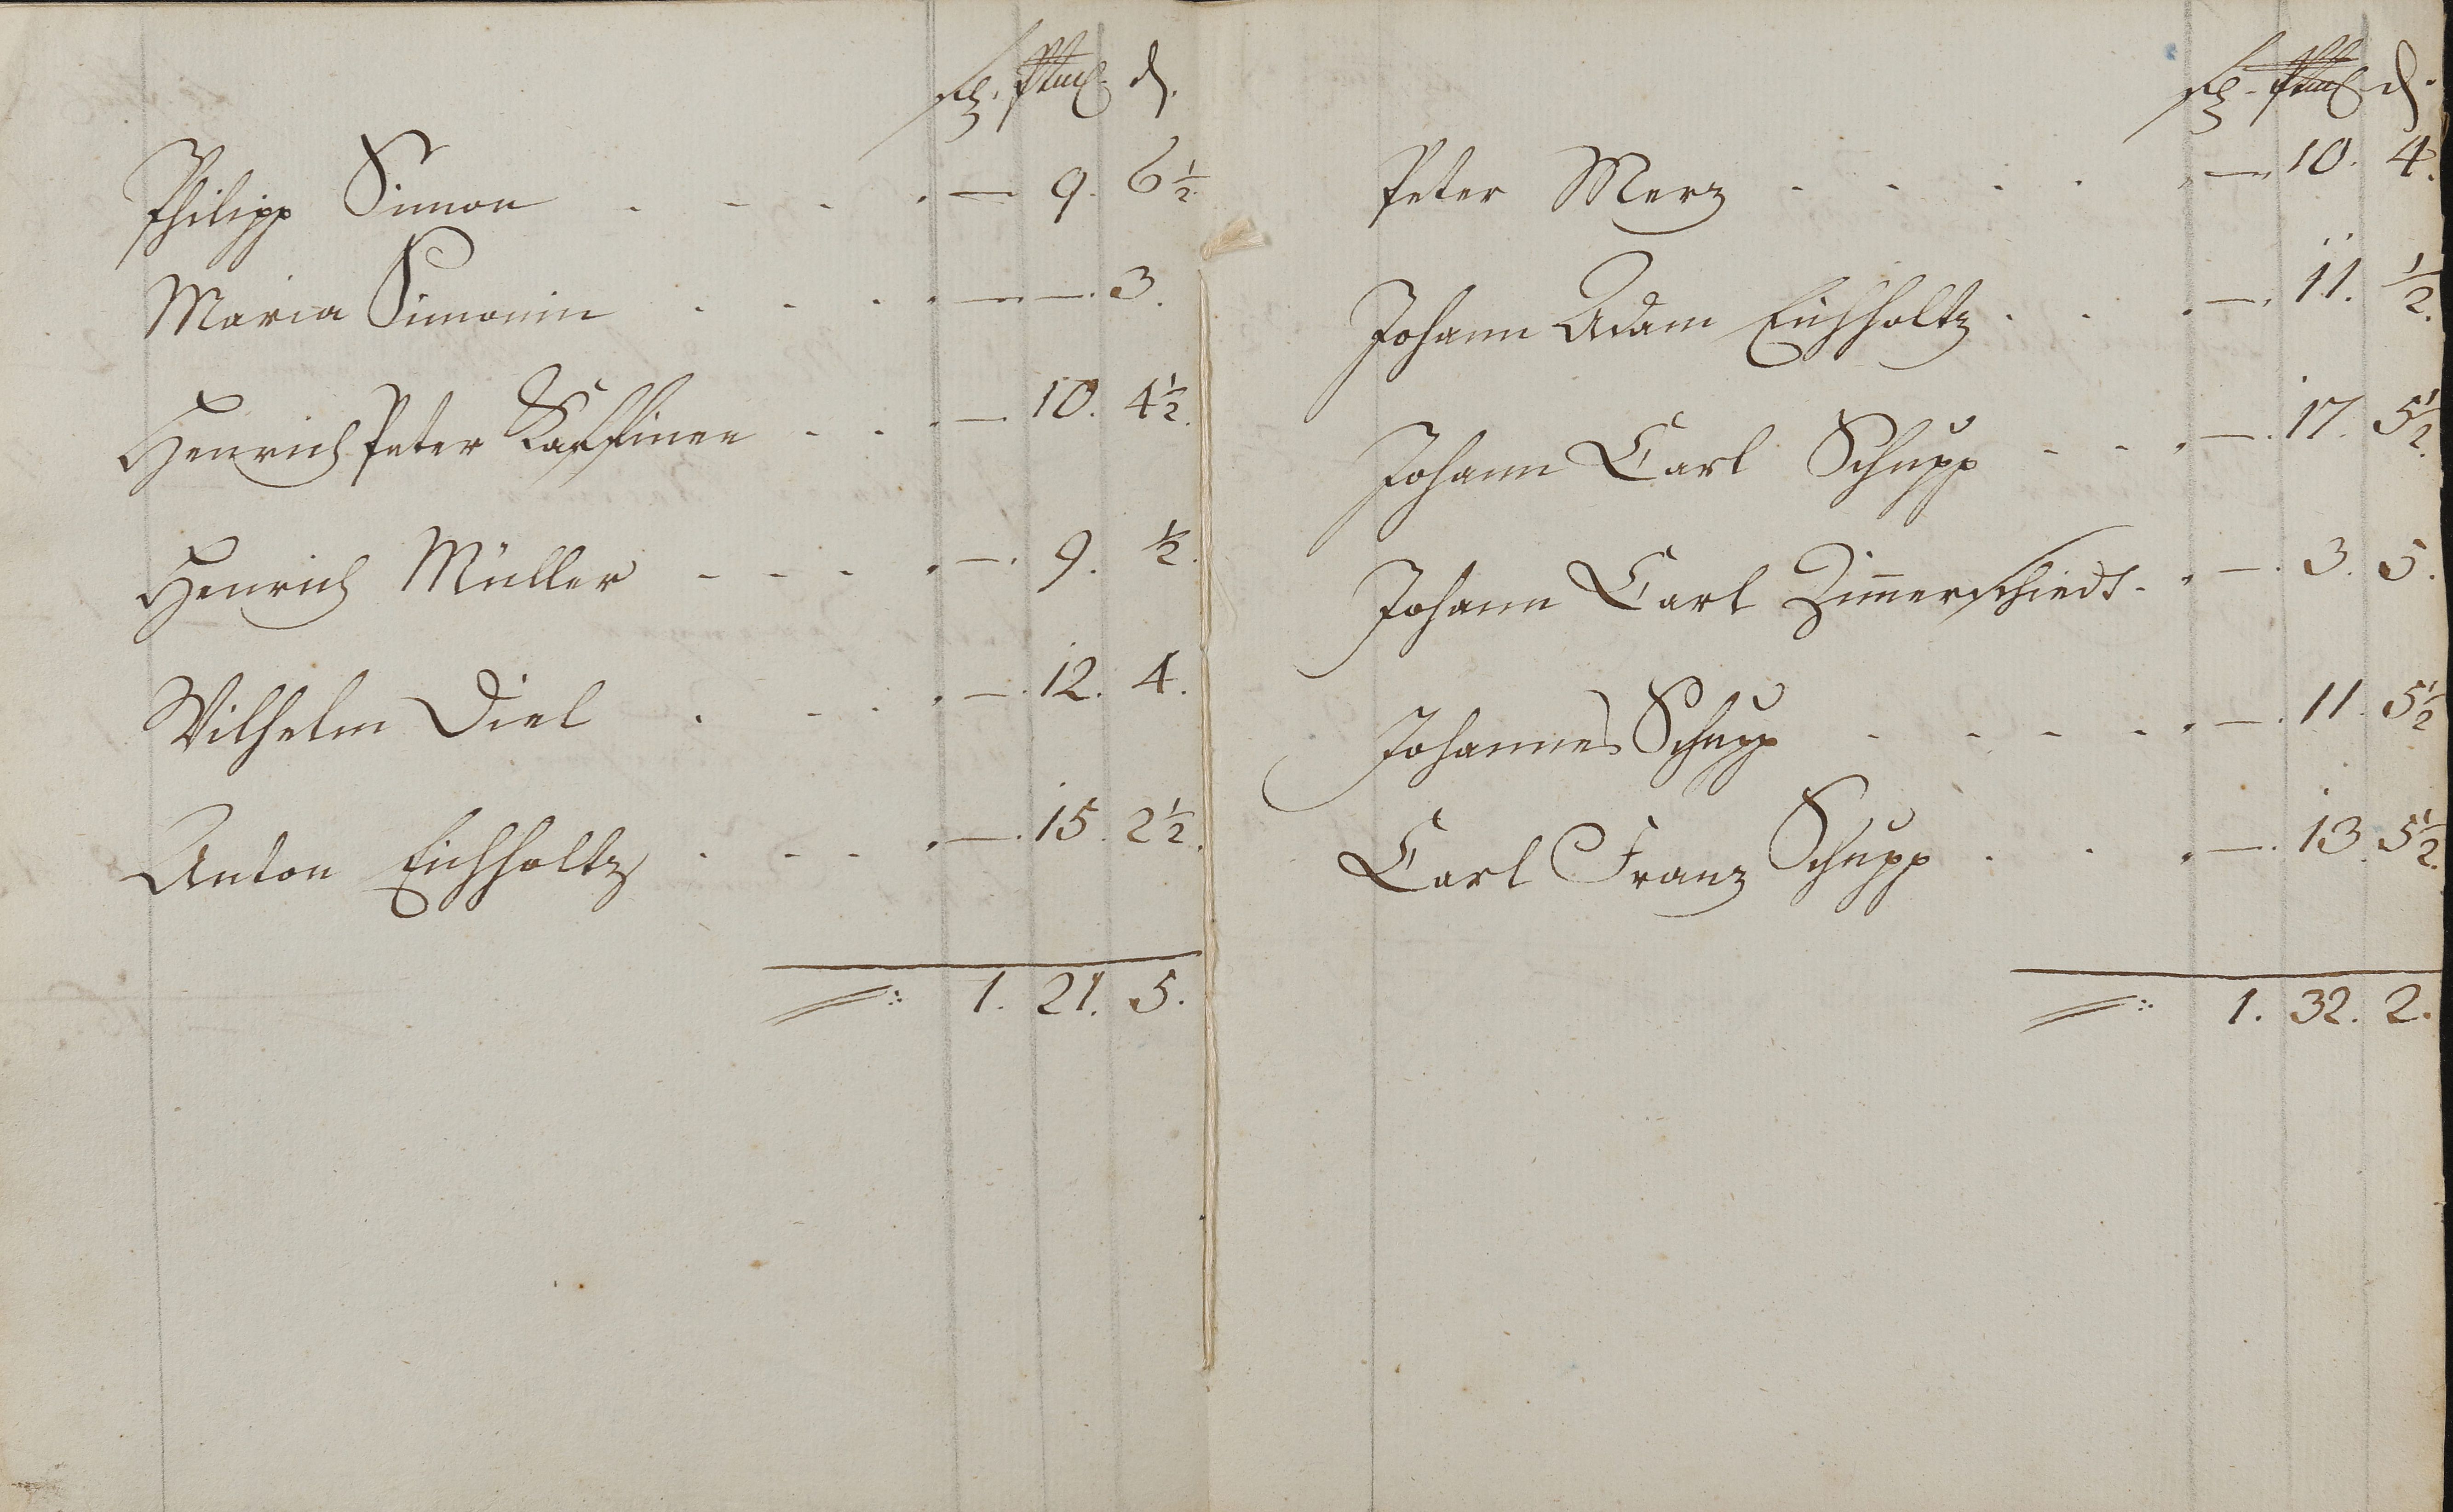 d.
Philipp Simon - - - - — 9. 6½
Maria Simonin - - - - — —. 3.
Henrich Peter - - - — 10. 4½.
Henrich Müller - - - - —. 9. ½.
Wilhelm Diel - - - - —. 12. 4.
Anton Eichholtz - - - - —. 15. 2½.
1. 21. 5.
d.
Peter Merz - - - - - — 10. 4.
Johann Adam Eichholtz - - - —. 11. ½.
Johann Carl Schupp - - - —. 17. 5½.
Johann Carl Zimerschiedt - - —. 3. 5.
Johannes Schupp - - - - - —. 11. 5½
Carl Franz Schupp - - - —. 13. 5½.
1. 32. 2.